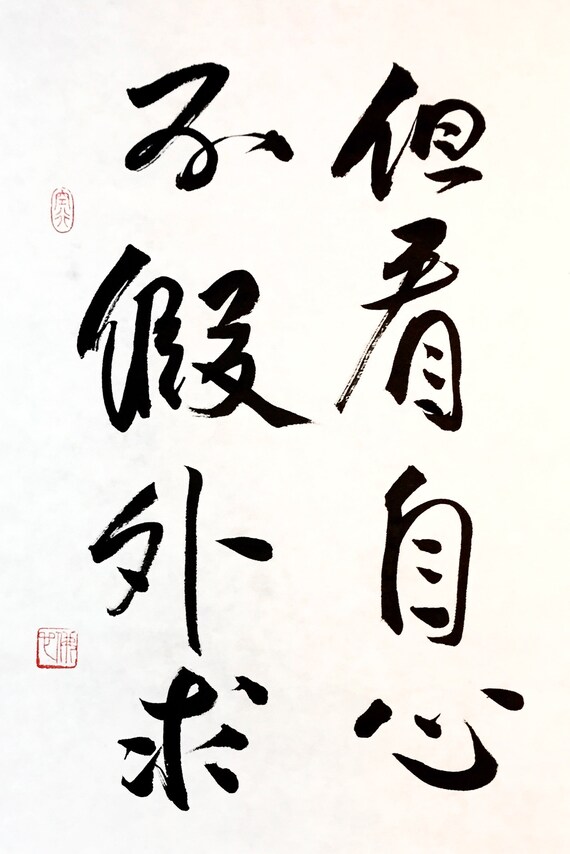 但看自心
不假外求